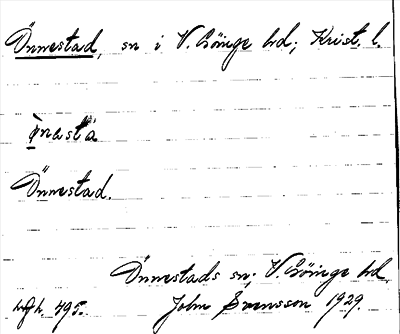 Önnestad, sn i V. Göinge hd; Krist. l.
ònastà
Önnestad.
Önnestads sn; V. Göinge hd
hfgh. 495. John Svensson 1929.